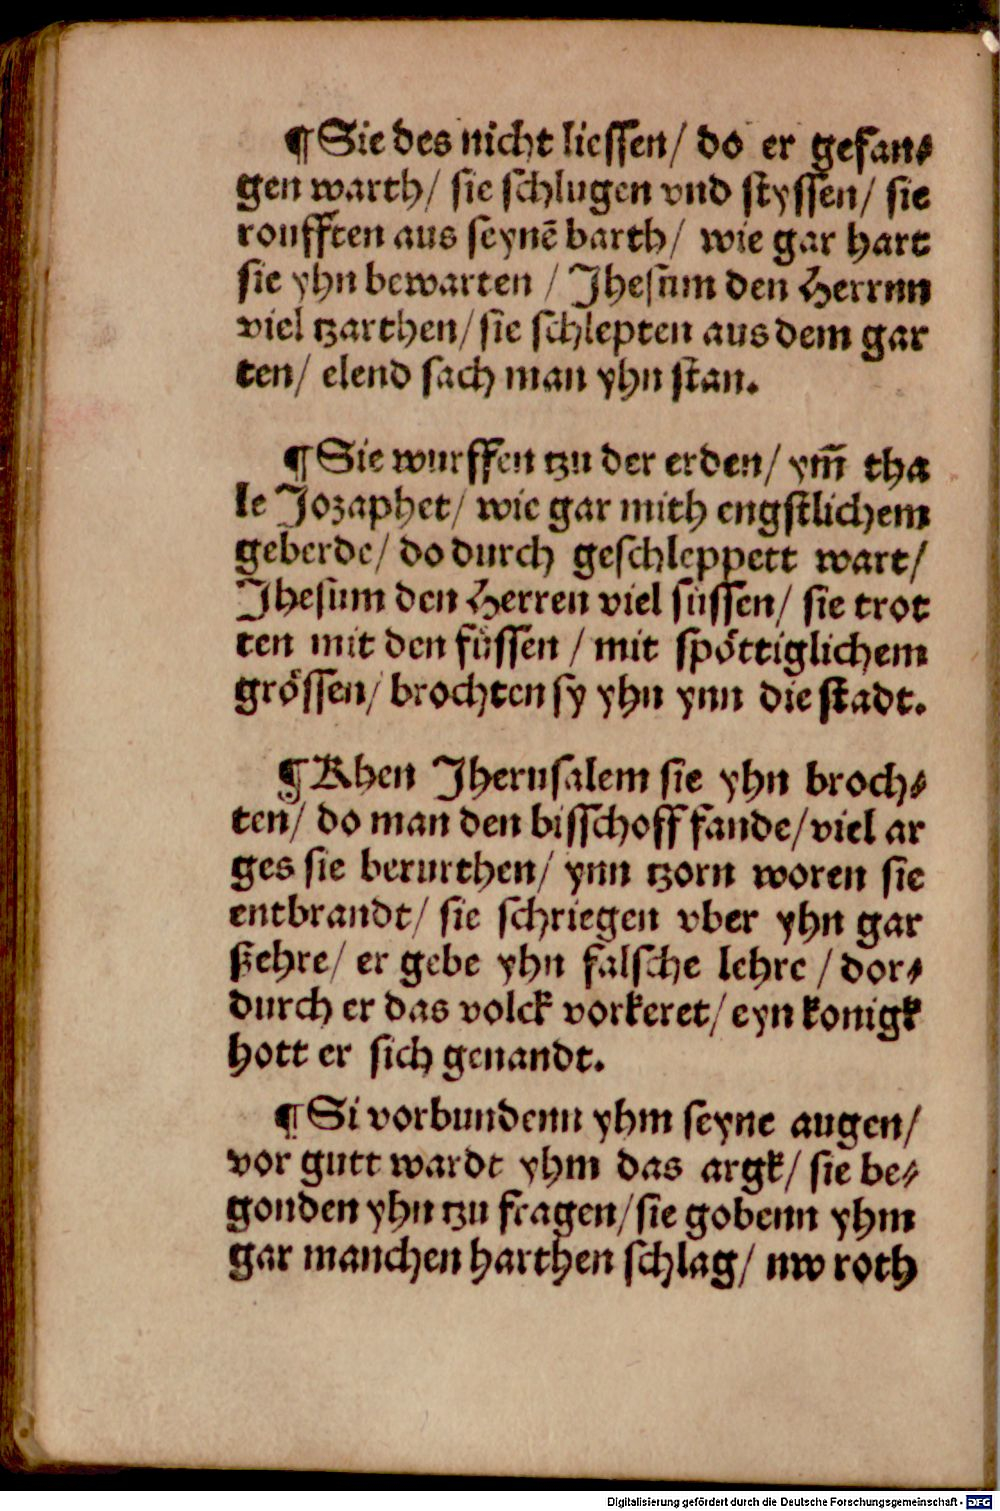 ¶Sie des nicht liessen/ do er gefan⸗
gen warth/ sie schlugen vnd styssen/ sie
roufften aus seynē barth/ wie gar hart
sie yhn bewarten / Jhesum den Herrnn
viel tzarthen/ sie schlepten aus dem gar
ten/ elend sach man yhn stan.
¶Sie wurffen tzu der erden/ ym̄ tha
le Jozaphet/ wie gar mith engstlichem
geberde/ do durch geschleppett wart/
Jhesum den Herren viel süssen/ sie trot
ten mit den füssen / mit spöttiglichem
grössen/ brochten sy yhn ynn die stadt.
¶Khen Jherusalem sie yhn broch⸗
ten/ do man den bisschoff fande/ viel ar
ges sie berurthen/ ynn tzorn woren sie
entbrandt/ sie schriegen vber yhn gar
ßehre/ er gebe yhn falsche lehre / dor⸗
durch er das volck vorkeret/ eyn konigk
hott er sich genandt.
¶Si vorbundenn yhm seyne augen/
vor gutt wardt yhm das argk/ sie be⸗
gonden yhn tzu fragen/ sie gobenn yhm
gar manchen harthen schlag/ nw roth
Digitalisierung gefördert durch die Deutsche Forschungsgemeinschaft - DFG